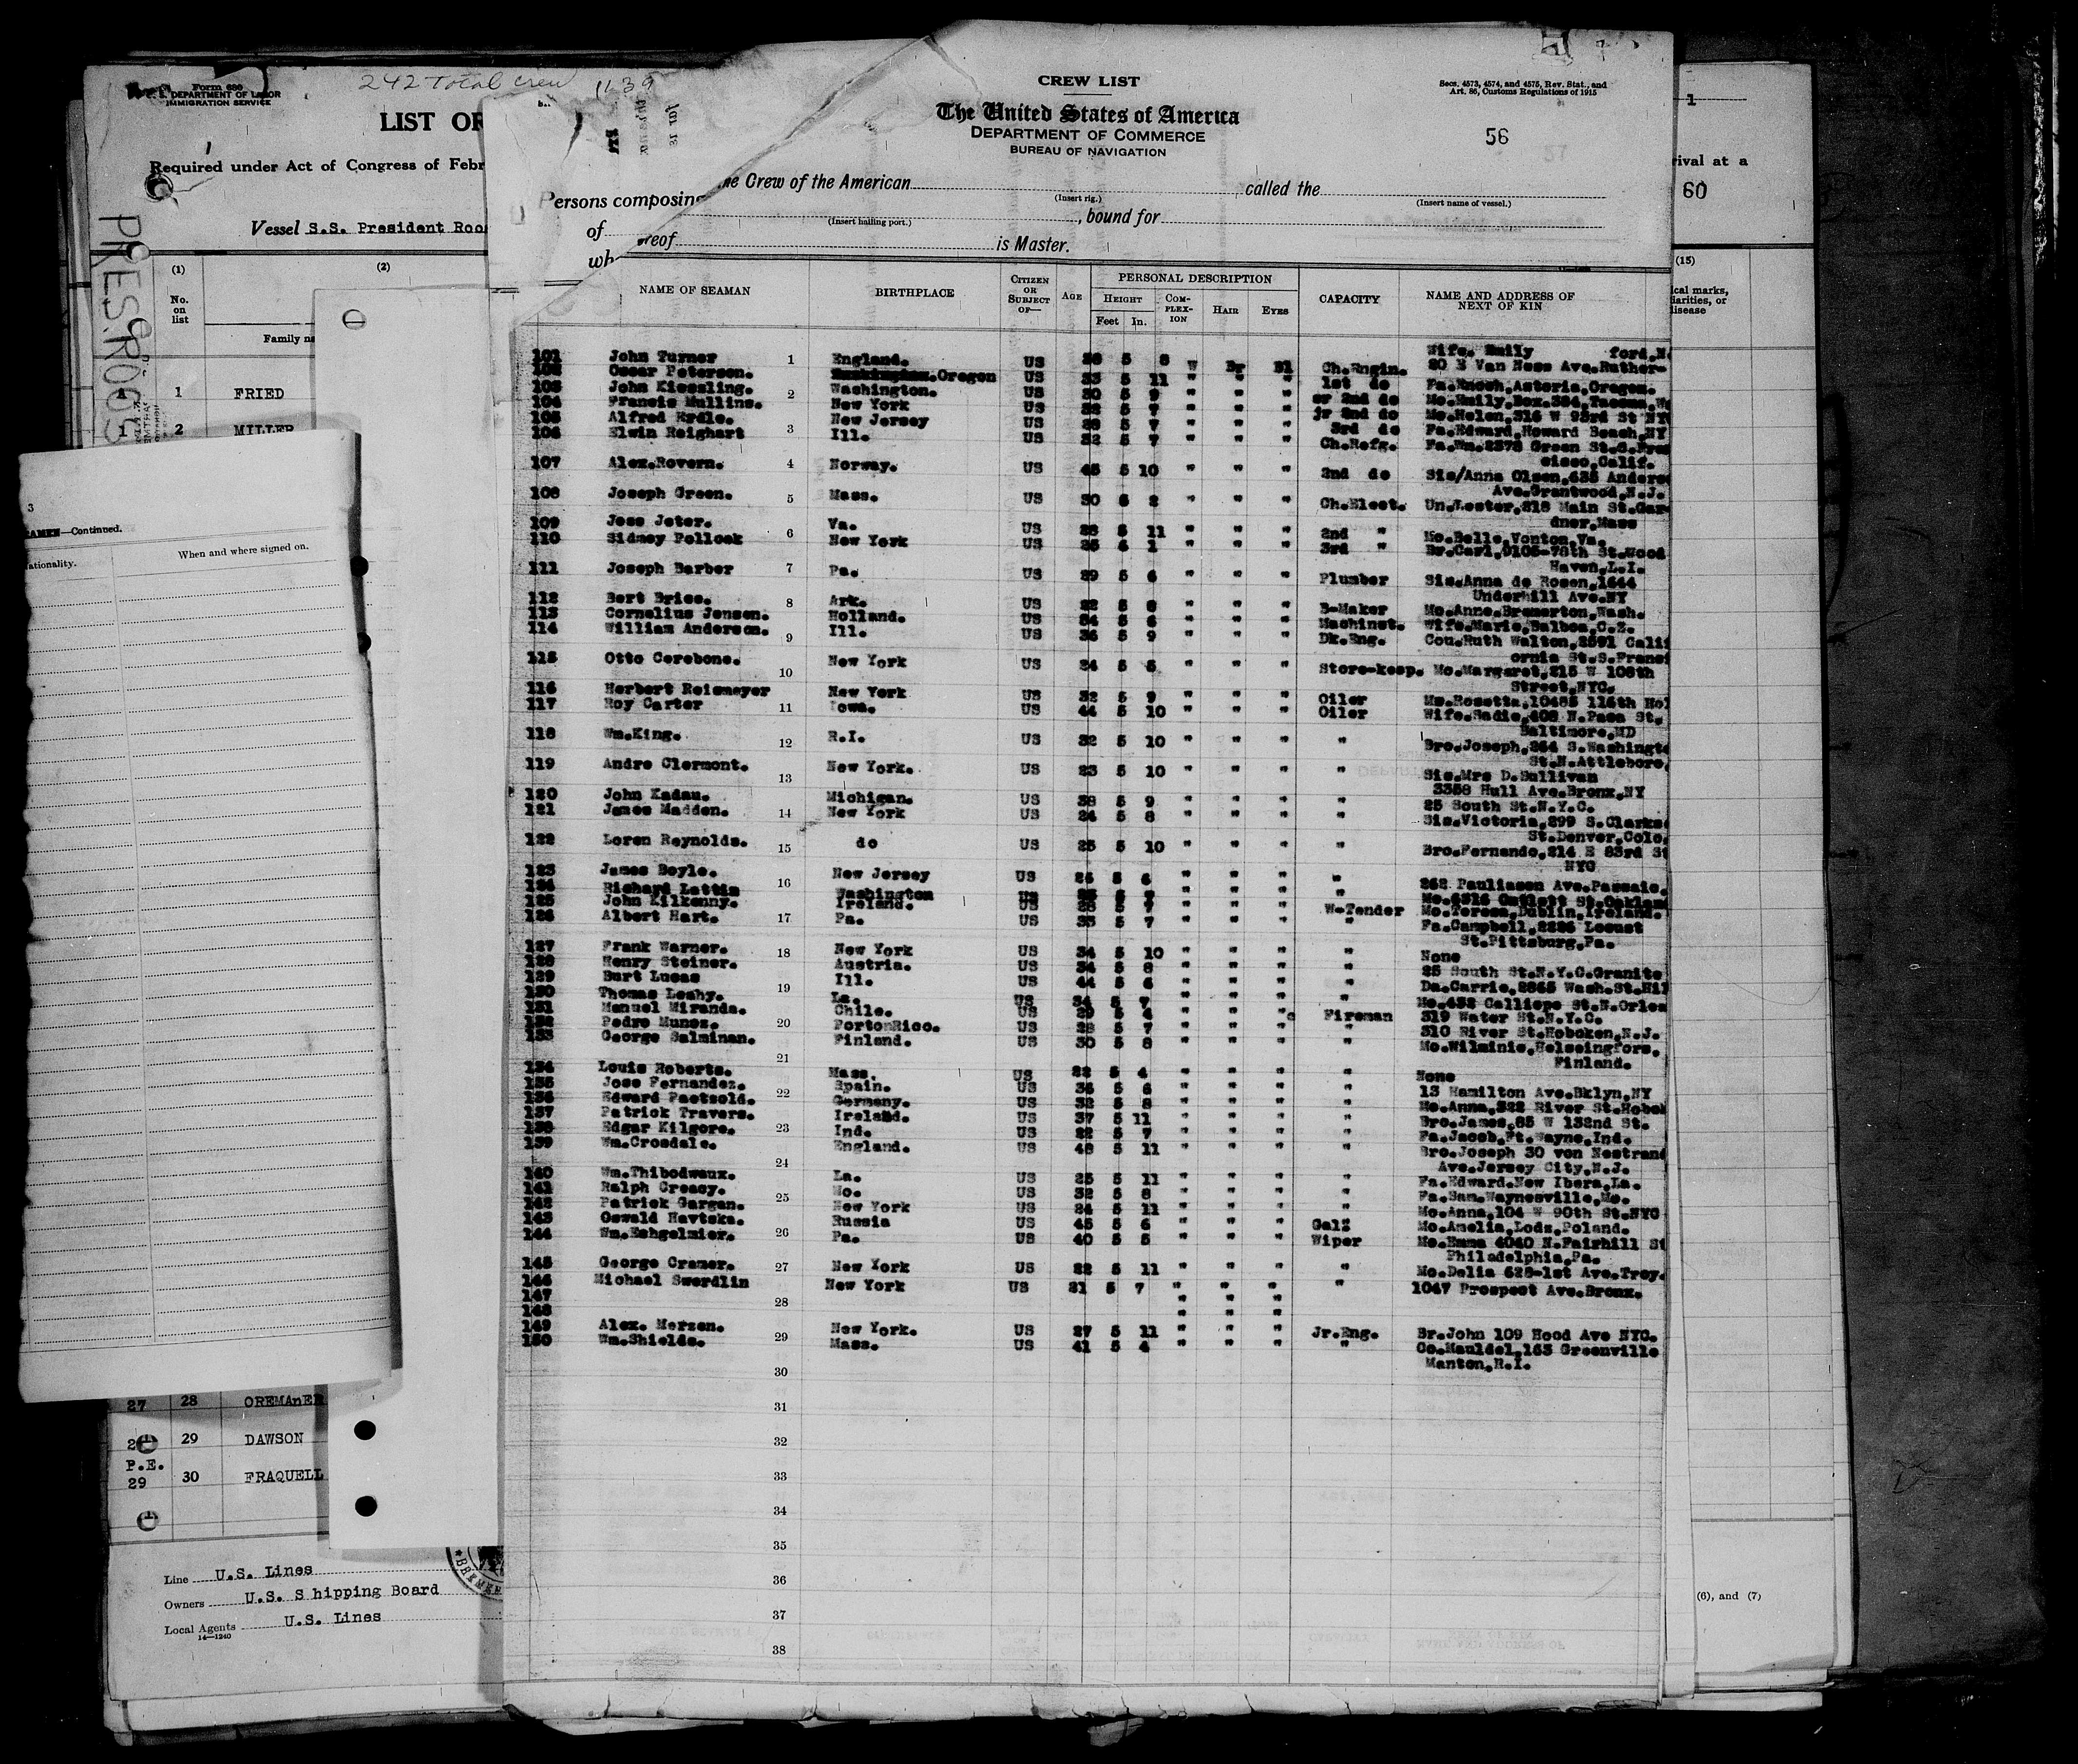 242 Total crew
1139
Form 680
U.S. DEPARTMENT OF LABOR
IMMIGRATION SERVICE
LIST OF
Required under Act of Congress of Febr
Vessel S.S. President Roos
PRES. ROOS
(1)
(2)
No. on list
Family na
1 FRIED
2 MILLER
3
AMEN—Continued.
ationality.
When and where signed on.
27 28 OREMAnER
29 DAWSON
P.E.
29 30 FRAQUELL
Line U.S. Lines
Owners U.S. S hipping Board
Local Agents U.S. Lines
14—1240
1
rival at a
60
(15)
ical marks,
liarities, or
disease
(6), and (7)
CREW LIST
Secs. 4573, 4574, and 4575, Rev. Stat., and
Art. 86, Customs Regulations of 1915
The United States of America
DEPARTMENT OF COMMERCE
BUREAU OF NAVIGATION
56
Persons composing
he Crew of the American
called the
(Insert rig.)
(Insert name of vessel.)
of
, bound for
(Insert hailing port.)
wh
ereof
is Master.
NAME OF SEAMAN
BIRTHPLACE
CITIZEN OR SUBJECT OF—
AGE
PERSONAL DESCRIPTION
HEIGHT
Feet In.
COMPLEXION
HAIR
EYES
CAPACITY
NAME AND ADDRESS OF NEXT OF KIN
101 John Turner 1 England. US 5 8 W Br Bl Ch.Engin. Wife. Emily ford,N
20 E Van Ness Ave.Ruther-
102 Oscar Peterson. Oregon US 33 5 11 " " " 1st do Fa.Enoch,Astoria,Oregon.
103 John Kiessling. 2 Washington. US 30 5 9 " " " sr 2nd do Mo.Emily,Box.384,Tacoma,W
104 Francis Mullins. New York US 5 7 " " " jr 2nd do Mo.Helen,316 W 93rd St NY
105 Alfred Erdle. New Jersey US 5 7 " " " 3rd do Fa.Edward,Howard Beach,NY
106 Elwin Reighart 3 Ill. US 32 5 7 " " " Ch.Refg. Fa.Wm.2378 Green St.S.Fran
cisco,Calif.
107 Alex.Rovern. 4 Norway. US 45 5 10 " " " 2nd do Sis/Anna Olsen,635 Anders
Ave.Grantwood,N.J.
108 Joseph Green. 5 Mass. US 30 2 " " " Ch.Elect. Un.Lester,218 Main St.Gar
dner,Mass
109 Jess Jeter. Va. US 5 11 " " " 2nd " Mo.Belle,Vonton,Va.
110 Sidney Pollock 6 New York US 1 " " " 3rd " Br.Carl,9105-78th St.Wood
Haven,L.I.
111 Joseph Barber 7 Pa. US 29 5 6 " " " Plumber Sis.Anna de Rosen,1644
Underhill Ave.NY
112 Bert Brice. 8 Ark. US 22 5 8 " " " B-Maker Mo.Anne.Bremerton,Wash.
113 Cornelius Jensen. Holland. US 54 5 6 " " " Machinst. Wife.Marie,Balboa,C.Z.
114 William Anderson. 9 Ill. US 36 5 9 " " " Dk.Eng. Cou.Ruth Walton,2591 Calif
ornia St.S.Franci
115 Otto Cerebone. 10 New York US 24 5 5 " " " Store-keep. Mo.Margaret,215 W 108th
Street,NYC.
116 Herbert Reismeyer New York US 32 5 9 " " " Oiler Mo.Rosetta,10485 116th
117 Roy Carter 11 Iowa. US 44 5 10 " " " Oiler Wife.Sadie,408 N.Paca St.
Baltimore,MD
118 Wm.King. 12 R.I. US 32 5 10 " " " " Bro.Joseph,264 S.Washingt
St.N.Attleboro,
119 Andre Clermont. 13 New York. US 23 5 10 " " " " Sis.Mrs D.Sullivan
3358 Hull Ave.Bronx,NY
120 John Kadau. Michigan. US 38 5 9 " " " " 25 South St.N.Y.C.
121 James Madden. 14 New York US 24 5 8 " " " " Sis.Victoria,299 S.Clarks
St.Denver,Colo,
122 Loren Reynolds. 15 do US 25 5 10 " " " " Bro.Fernando,214 E 83rd St
NYC
123 James Boyle. 16 New Jersey US 5 6 " " " " 262 Paulison Ave.Passaic.
124 Richard Lattin Washington US " " " " St.Oakland
125 John Kilkenny. Ireland. US 5 7 " " " W-Tender Mo.Teresa,Dublin,Ireland.
126 Albert Hart. 17 Pa. US 33 5 7 " " " " Fa.Campbell,2226 Locust
St.Pittsburg,Pa.
127 Frank Warner. 18 New York US 34 5 10 " " " " None
128 Henry Steiner. Austria. US 34 5 8 " " " " 25 South St.N.Y.C.Granite
129 Burt Lucas 19 Ill. US 44 5 6 " " " " Da.Carrie,2865 Wash.St.Hil
130 Thomas Leahy. La. US 34 5 7 " " " " Mo.432 Calliope St.N.Orlea
131 Manuel Miranda. Chile. US 29 5 4 " " " Fireman 319 Water St.N.Y.C.
132 Pedro Munoz. 20 PortoRico. US 28 5 7 " " " " 310 River St.Hoboken,N.J.
133 George Salminan. 21 Finland. US 30 5 8 " " " " Mo.Wilminie,Helseingfors,
Finland.
134 Louis Roberts. Mass. US 22 5 4 " " " " None
135 Jose Fernandez. 22 Spain. US 36 5 6 " " " " 13 Hamilton Ave.Bklyn,NY
136 Edward Paetzold. Germany. US 32 5 8 " " " " Mo.Anna,322 River St.Hobok
137 Patrick Travers. Ireland. US 37 5 11 " " " " Bro.James,85 W 132nd St.
138 Edgar Kilgore. 23 Ind. US 22 5 7 " " " " Fa.Jacob,Ft.Wayne,Ind.
139 Wm.Crosdale. 24 England. US 48 5 11 " " " " Bro.Joseph 30 von Nostrand
Ave.Jersey City,N.J.
140 Wm.Thibodwaux. La. US 25 5 11 " " " " Fa.Edward.New Ibera,La.
141 Ralph Creasy. 25 Mo. US 32 5 8 " " " " Fa.Sam.Waynesville,Mo.
142 Patrick Gargan. New York US 24 5 11 " " " " Mo.Anna,104 W 90th St.NYC
143 Oswald Havtska. Russia US 45 5 6 " " " Mo.Amelia,Lodz,Poland.
144 Wm.Eshgelmier. 26 Pa. US 40 5 5 " " " Wiper Mo.Emma 4040 N.Fairhill St
Philadelphia,Pa.
145 George Cramer. 27 New York US 22 5 11 " " " " Mo.Delia 628-1st Ave.Troy.
146 Michael Swerdlin New York US 21 5 7 " " " " 1047 Prospect Ave.Bronx.
147 " " "
148 28 " " "
149 Alex. Merzen. New York. US 27 5 11 " " " Jr.Eng. Br.John 109 Hood Ave NYC.
150 Wm.Shields. 29 Mass. US 41 5 4 " " " " Co.Mauldel,163 Greenville
Manton,R.I.
30
31
32
33
34
35
36
37
38